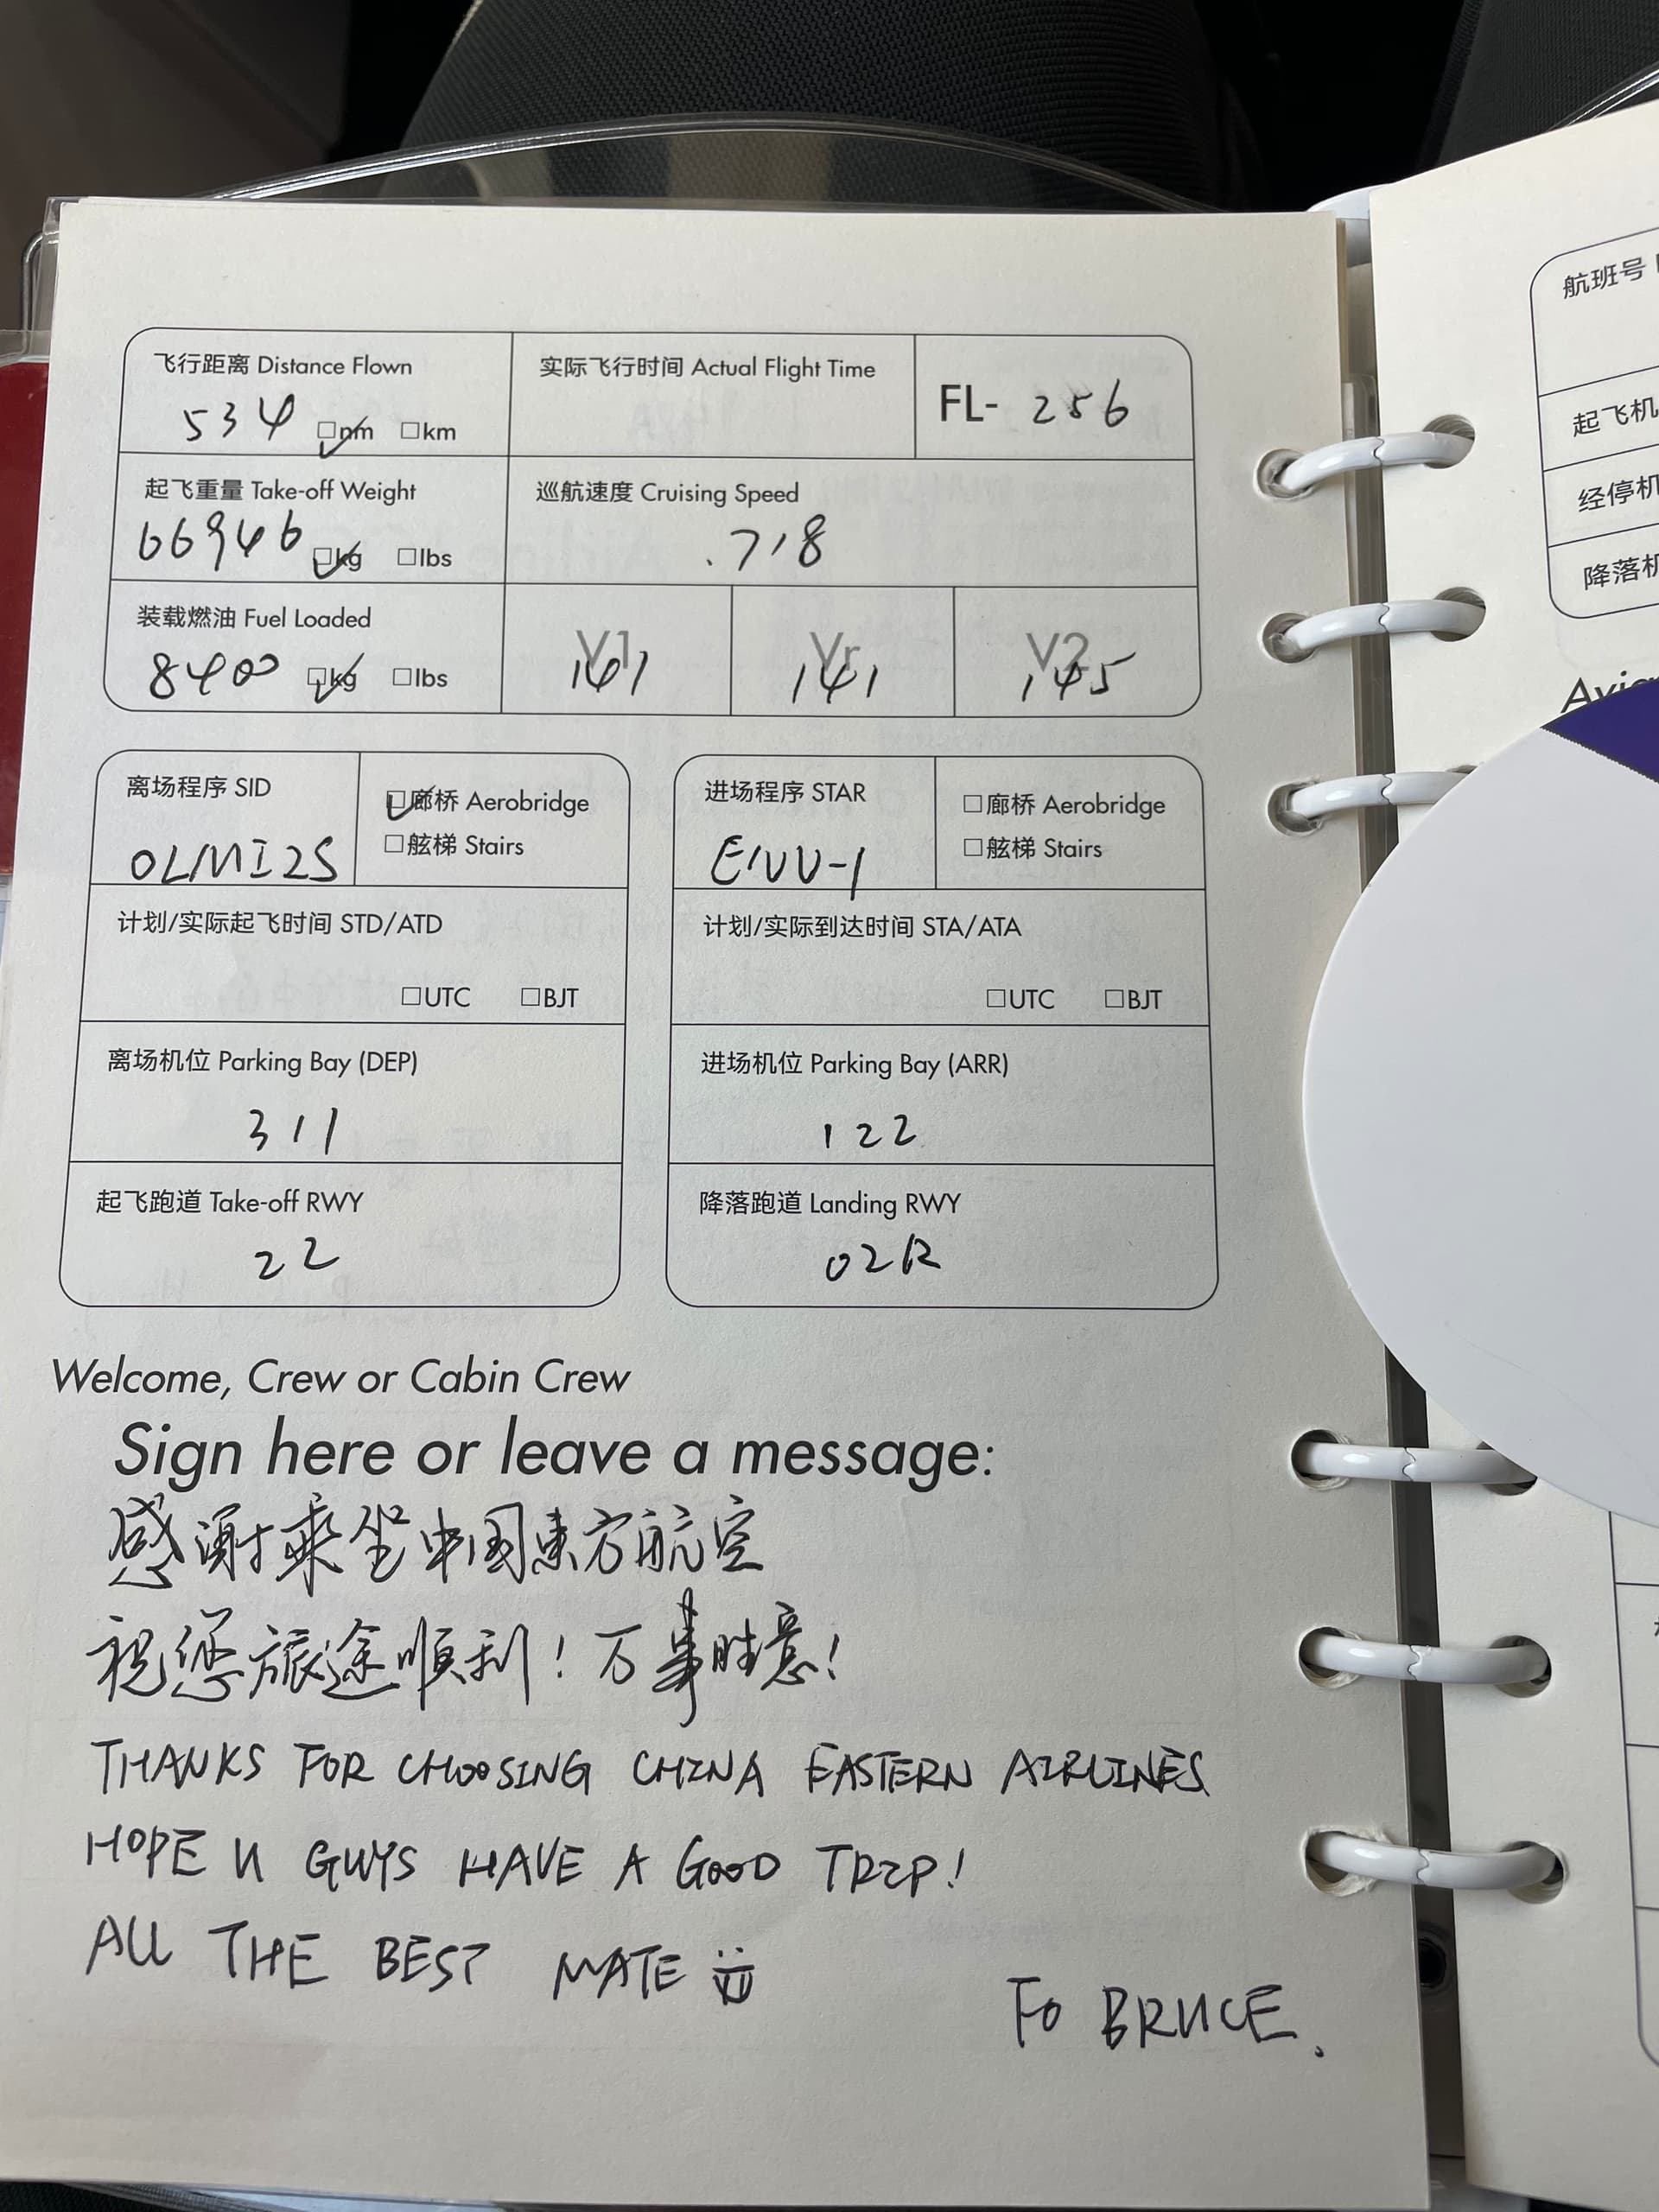 飞行距离 Distance Flown
534 ☑nm ☐km
实际飞行时间 Actual Flight Time
FL- 256
起飞重量 Take-off Weight
66946 ☑kg ☐lbs
巡航速度 Cruising Speed
.718
装载燃油 Fuel Loaded
8400 ☑kg ☐lbs
V1
141
Vr
141
V2
145
离场程序 SID
OLMI2S
☑廊桥 Aerobridge
☐舷梯 Stairs
计划/实际起飞时间 STD/ATD
☐UTC ☐BJT
离场机位 Parking Bay (DEP)
311
起飞跑道 Take-off RWY
22
进场程序 STAR
☐廊桥 Aerobridge
☐舷梯 Stairs
计划/实际到达时间 STA/ATA
☐UTC ☐BJT
进场机位 Parking Bay (ARR)
122
降落跑道 Landing RWY
02R
Welcome, Crew or Cabin Crew
Sign here or leave a message:
感谢乘坐中国東方航空
祝您旅途顺利！万事胜意！
THANKS FOR CHOOSING CHINA EASTERN AIRLINES
HOPE U GUYS HAVE A GOOD TRIP!
ALL THE BEST MATE
BRUCE.
航班号
起飞机
经停机
降落机